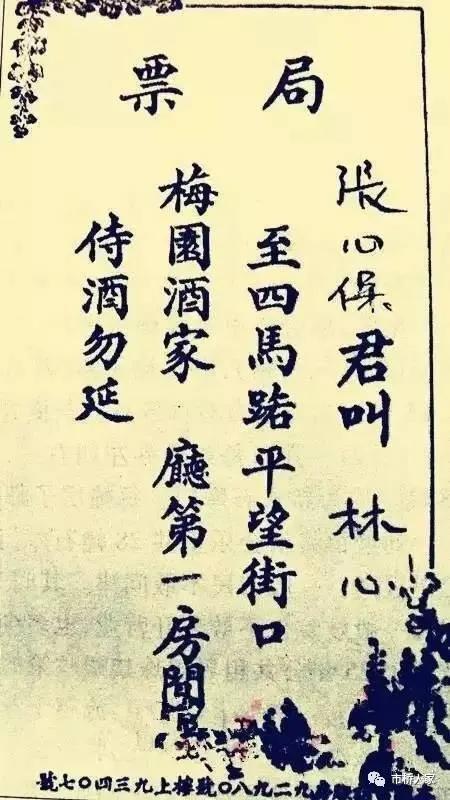 局票
張心保君叫 林心
至四馬路平望街口
梅園酒家 廳第一房間
侍酒勿延
九二九八〇號樓上九三四〇七號
市桥人家